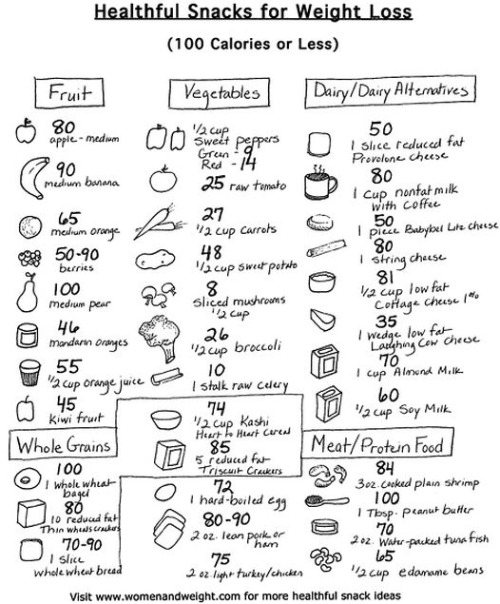 Healthful Snacks for Weight Loss
(100 Calories or Less)
Fruit
80
apple - medium
90
medium banana
65
medium orange
50-90
berries
100
medium pear
46
mandarin oranges
55
1/2 cup orange juice
45
Kiwi fruit
Vegetables
1/2 cup
Sweet peppers
Green - 9
Red - 14
25 raw tomato
27
1/2 cup carrots
48
1/2 cup sweet potato
8
Sliced mushrooms
1/2 cup
26
1/2 cup broccoli
10
1 stalk raw celery
Dairy/Dairy Alternatives
50
1 slice reduced fat
Provolone cheese
80
1 cup nonfat milk
with coffee
50
1 piece Babybel Lite cheese
80
1 string cheese
81
1/2 cup low fat
Cottage cheese 1%
35
1 wedge low fat
Laughing Cow cheese
70
1 cup Almond Milk
60
1/2 cup Soy Milk
Whole Grains
100
1 whole wheat
bagel
80
10 reduced fat
Thin wheats crackers
70-90
1 slice
whole wheat bread
74
1/2 cup Kashi
Heart to Heart Cereal
85
5 reduced fat
Triscuit Crackers
Meat/Protein Food
72
1 hard-boiled egg
80-90
2 oz. lean pork or
ham
75
2 oz. light turkey/chicken
84
3oz. cooked plain shrimp
100
1 Tbsp. peanut butter
70
2 oz. Water-packed tuna fish
65
1/2 cup edamame beans
Visit www.womenandweight.com for more healthful snack ideas